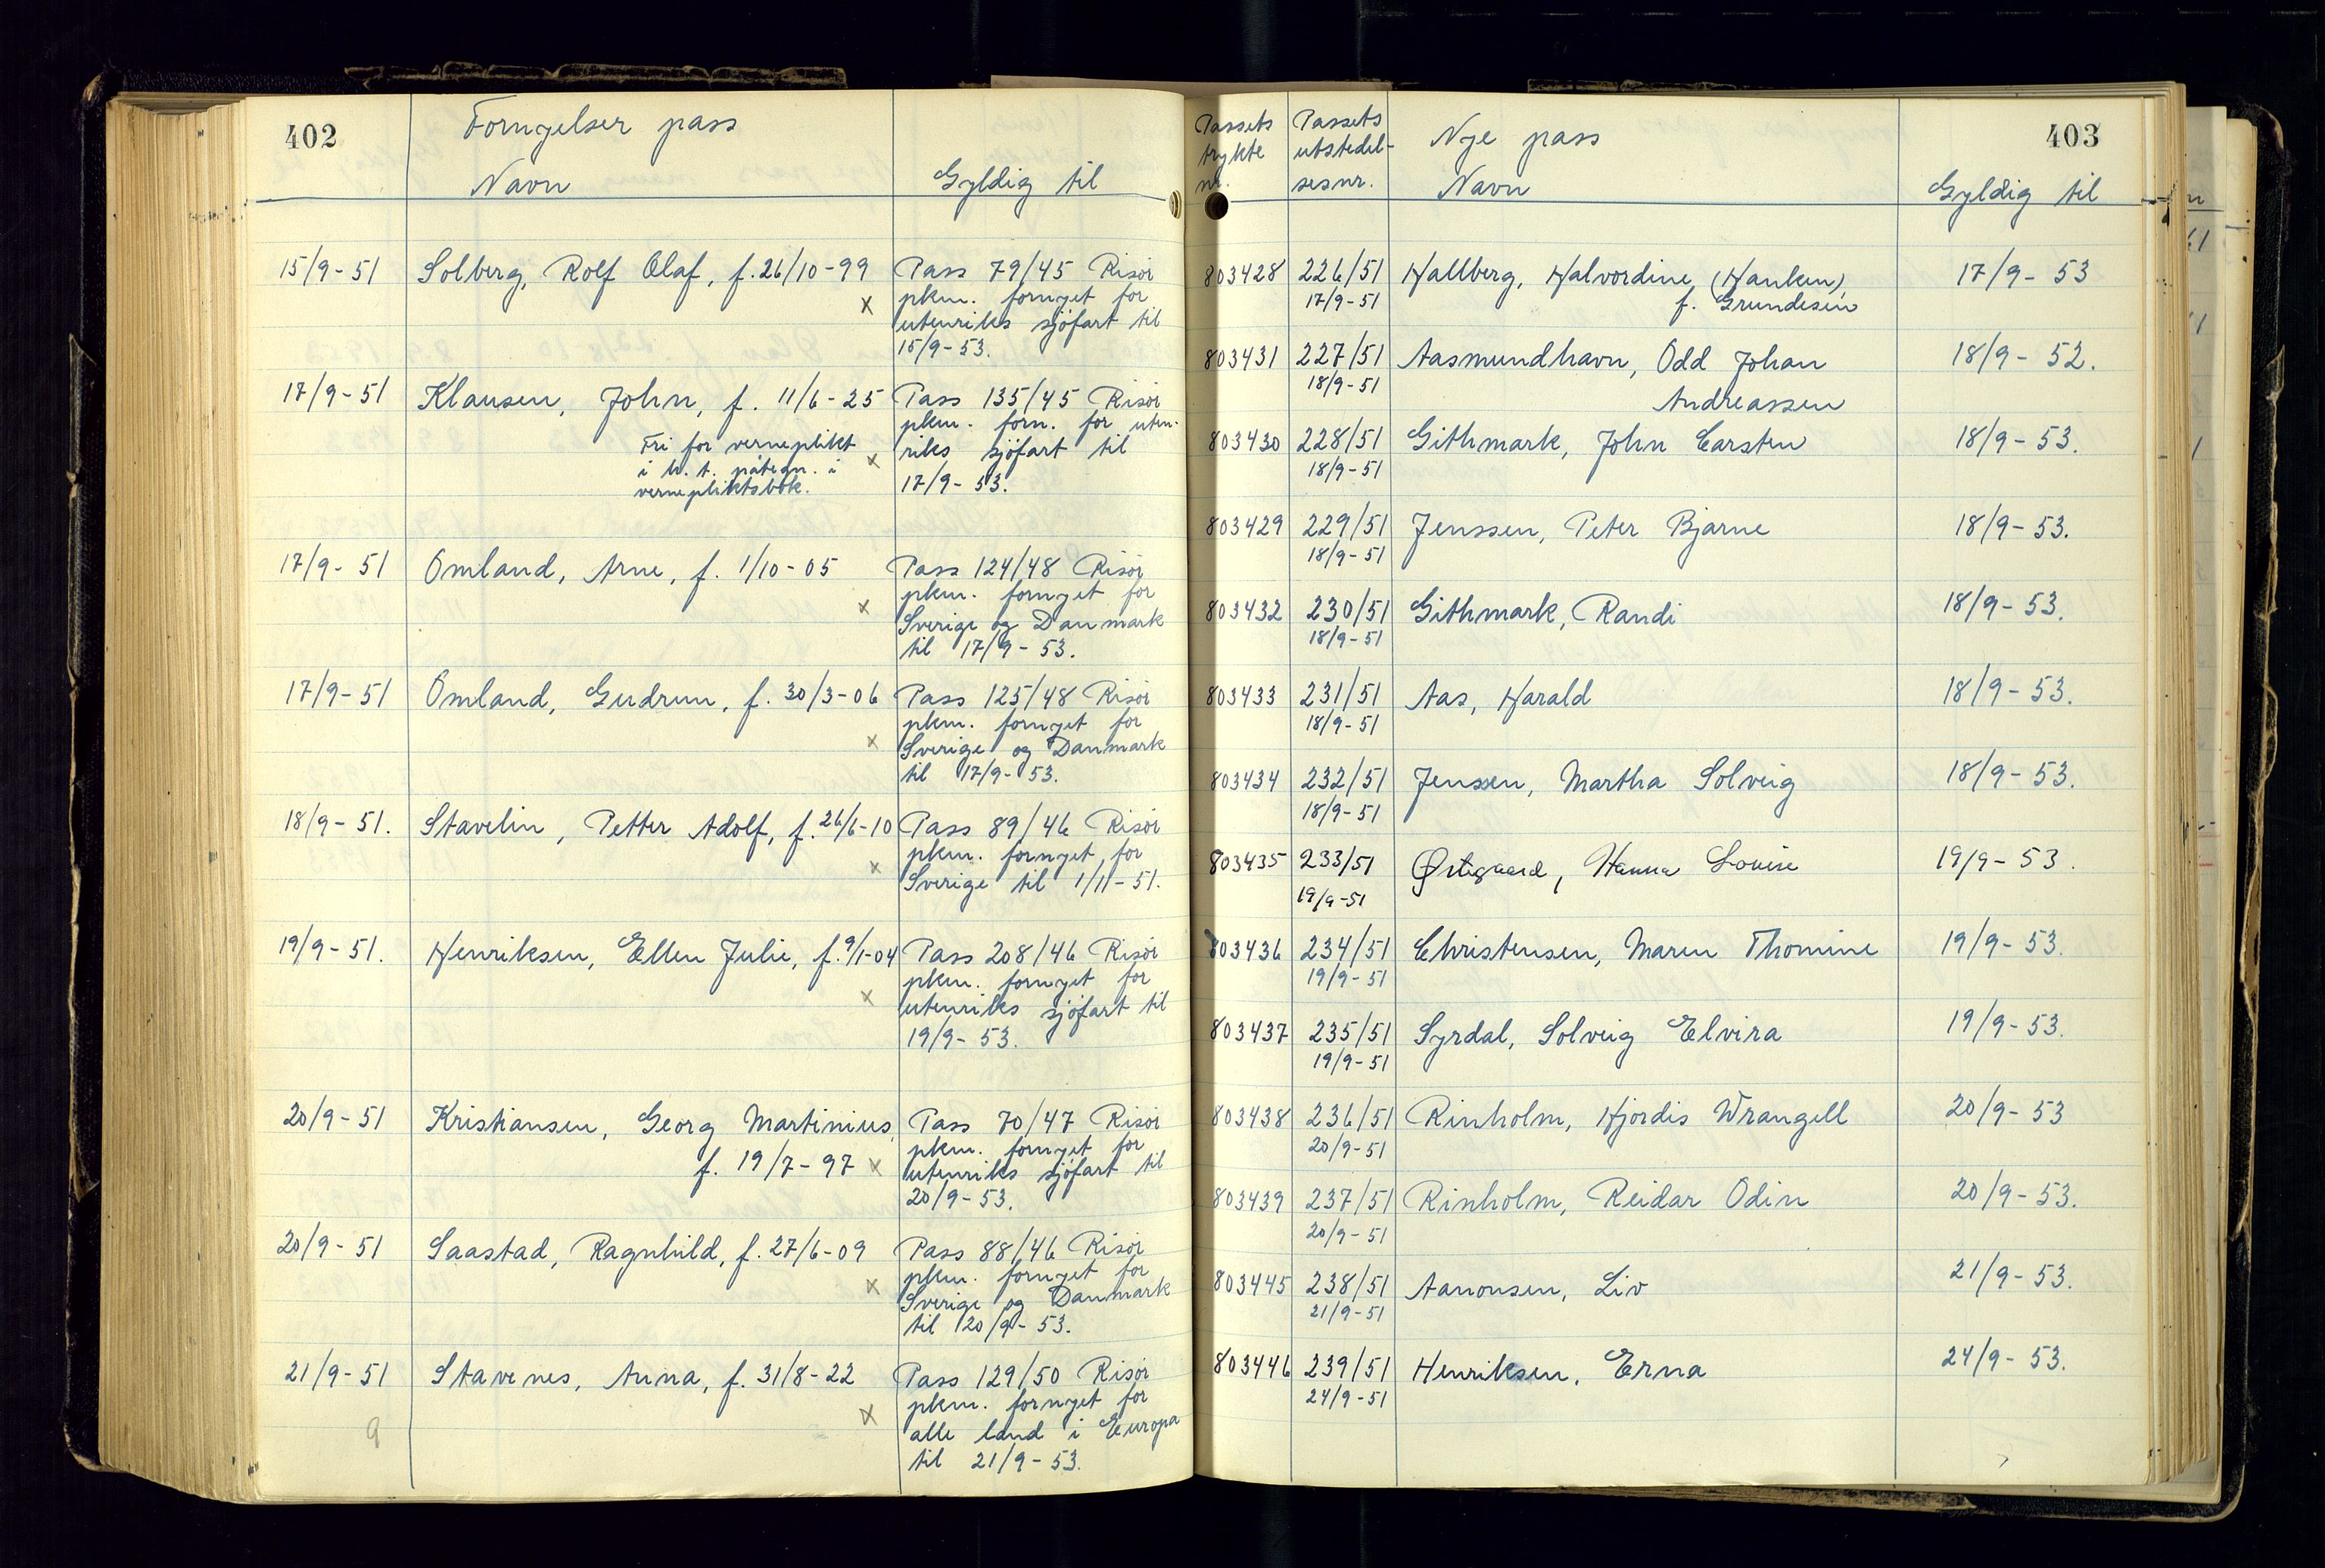 402
Fornyelser pass
Navn
Gyldig til
15/9-51 Solberg, Rolf Olaf, f. 26/10-99 Pass 79/45 Risør
x pkm. fornyet for
utenriks sjøfart til
15/9-53.
17/9-51 Klausen, John, f. 11/6-25 Pass 135/45 Risør
pkm. forn. for uten-
Fri for verneplikt riks sjøfart til
i h. t. påtegn. i x
vernepliktsbok. 17/9-53.
17/9-51 Omland, Arne, f. 1/10-05 Pass 124/48 Risør
x pkm. fornyet for
Sverige og Danmark
til 17/9-53.
17/9-51 Omland, Gudrun, f. 30/3-06 Pass 125/48 Risør
pkm. fornyet for
x Sverige og Danmark
til 17/9-53.
18/9-51. Stavelin, Petter Adolf, f. 26/6-10 Pass 89/46 Risør
pkm. fornyet for
x Sverige til 1/11-51.
19/9-51. Henriksen, Ellen Julie, f. 9/1-04 Pass 208/46 Risør
pkm. fornyet for
x utenriks sjøfart til
19/9-53.
20/9-51 Kristiansen, Georg Martinius, Pass 70/47 Risør
pkm. fornyet for
f. 19/7-97 x utenriks sjøfart til
20/9-53.
20/9-51 Saastad, Ragnhild, f. 27/6-09 Pass 88/46 Risør
pkm. fornyet for
x Sverige og Danmark
til 20/9-53.
21/9-51 Stavenes, Anna, f. 31/8-22 Pass 129/50 Risør
x pkm. fornyet for
9 alle land i Europa
til 21/9-53.
403
Passets Passets
trykte utstedel-
nr. sesnr.
Nye pass
Navn
Gyldig til
803428 226/51 Hallberg, Halvordine (Hanken), 17/9-53
17/9-51 f. Grundesen
803431 227/51 Aasmundhavn, Odd Johan 18/9-52.
18/9-51 Andreassen
803430 228/51 Githmark, John Carsten 18/9-53.
18/9-51
803429 229/51 Jenssen, Peter Bjarne 18/9-53.
18/9-51
803432 230/51 Githmark, Randi 18/9-53.
18/9-51
803433 231/51 Aas, Harald 18/9-53.
18/9-51
803434 232/51 Jenssen, Martha Solveig 18/9-53.
18/9-51
803435 233/51 Østegaard, Hanna Louise 19/9-53.
19/9-51
803436 234/51 Christensen, Maren Thomine 19/9-53.
19/9-51
803437 235/51 Syrdal, Solveig Elvira 19/9-53.
19/9-51
803438 236/51 Rinholm, Hjordis Wrangell 20/9-53
20/9-51
803439 237/51 Rinholm, Reidar Odin 20/9-53.
20/9-51
803445 238/51 Aanonsen, Liv 21/9-53.
21/9-51
803446 239/51 Henriksen, Erna 24/9-53.
24/9-51